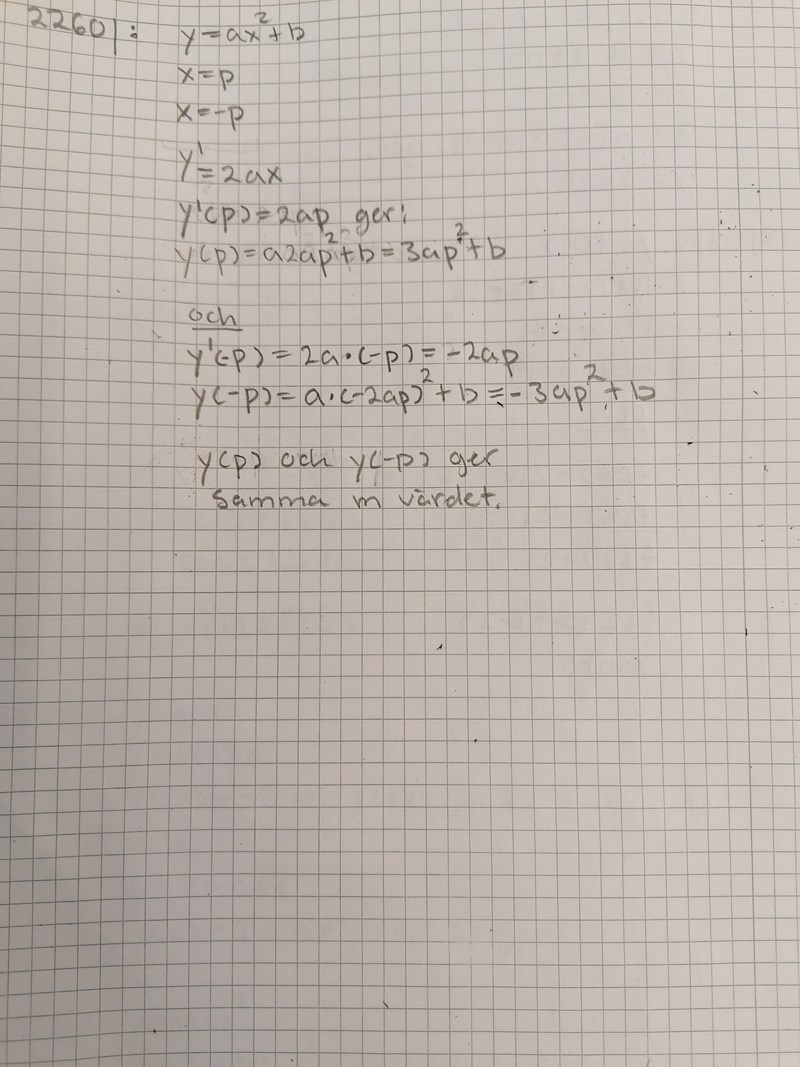 2260: y=ax²+b
x=p
x=-p
y'=2ax
y'(p)=2ap ger:
y(p)=a2ap²+b=3ap²+b
och
y'(-p)=2a·(-p)=-2ap
y(-p)=a·(-2ap)²+b=-3ap²+b
y(p) och y(-p) ger
samma m värdet.